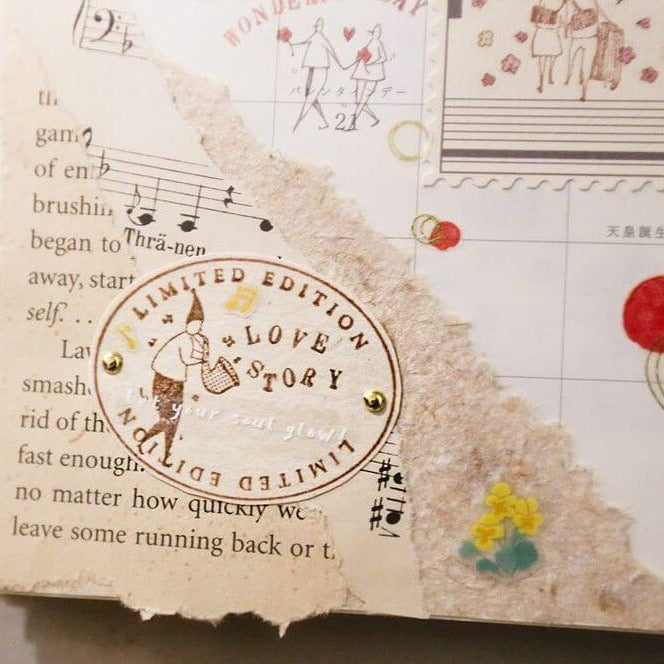 WONDERFUL DAY
バレンタインデー
21
天皇誕生
of en
brushin
began to
Thrä-nen
away, start
self. . .
LIMITED EDITION
LOVE
STORY
let your soul glow!
LIMITED EDITION
smash
rid of th
fast enough.
no matter how quickly we
leave some running back or t